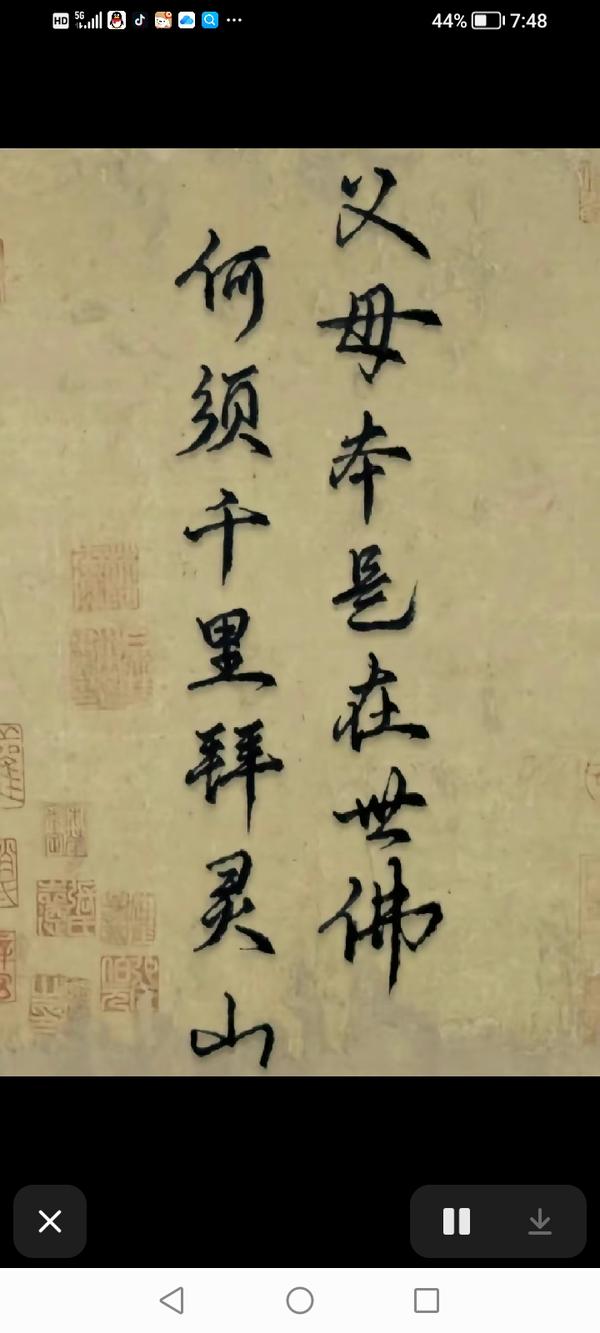 HD 5G 44% 7:48
父母本是在世佛
何须千里拜灵山